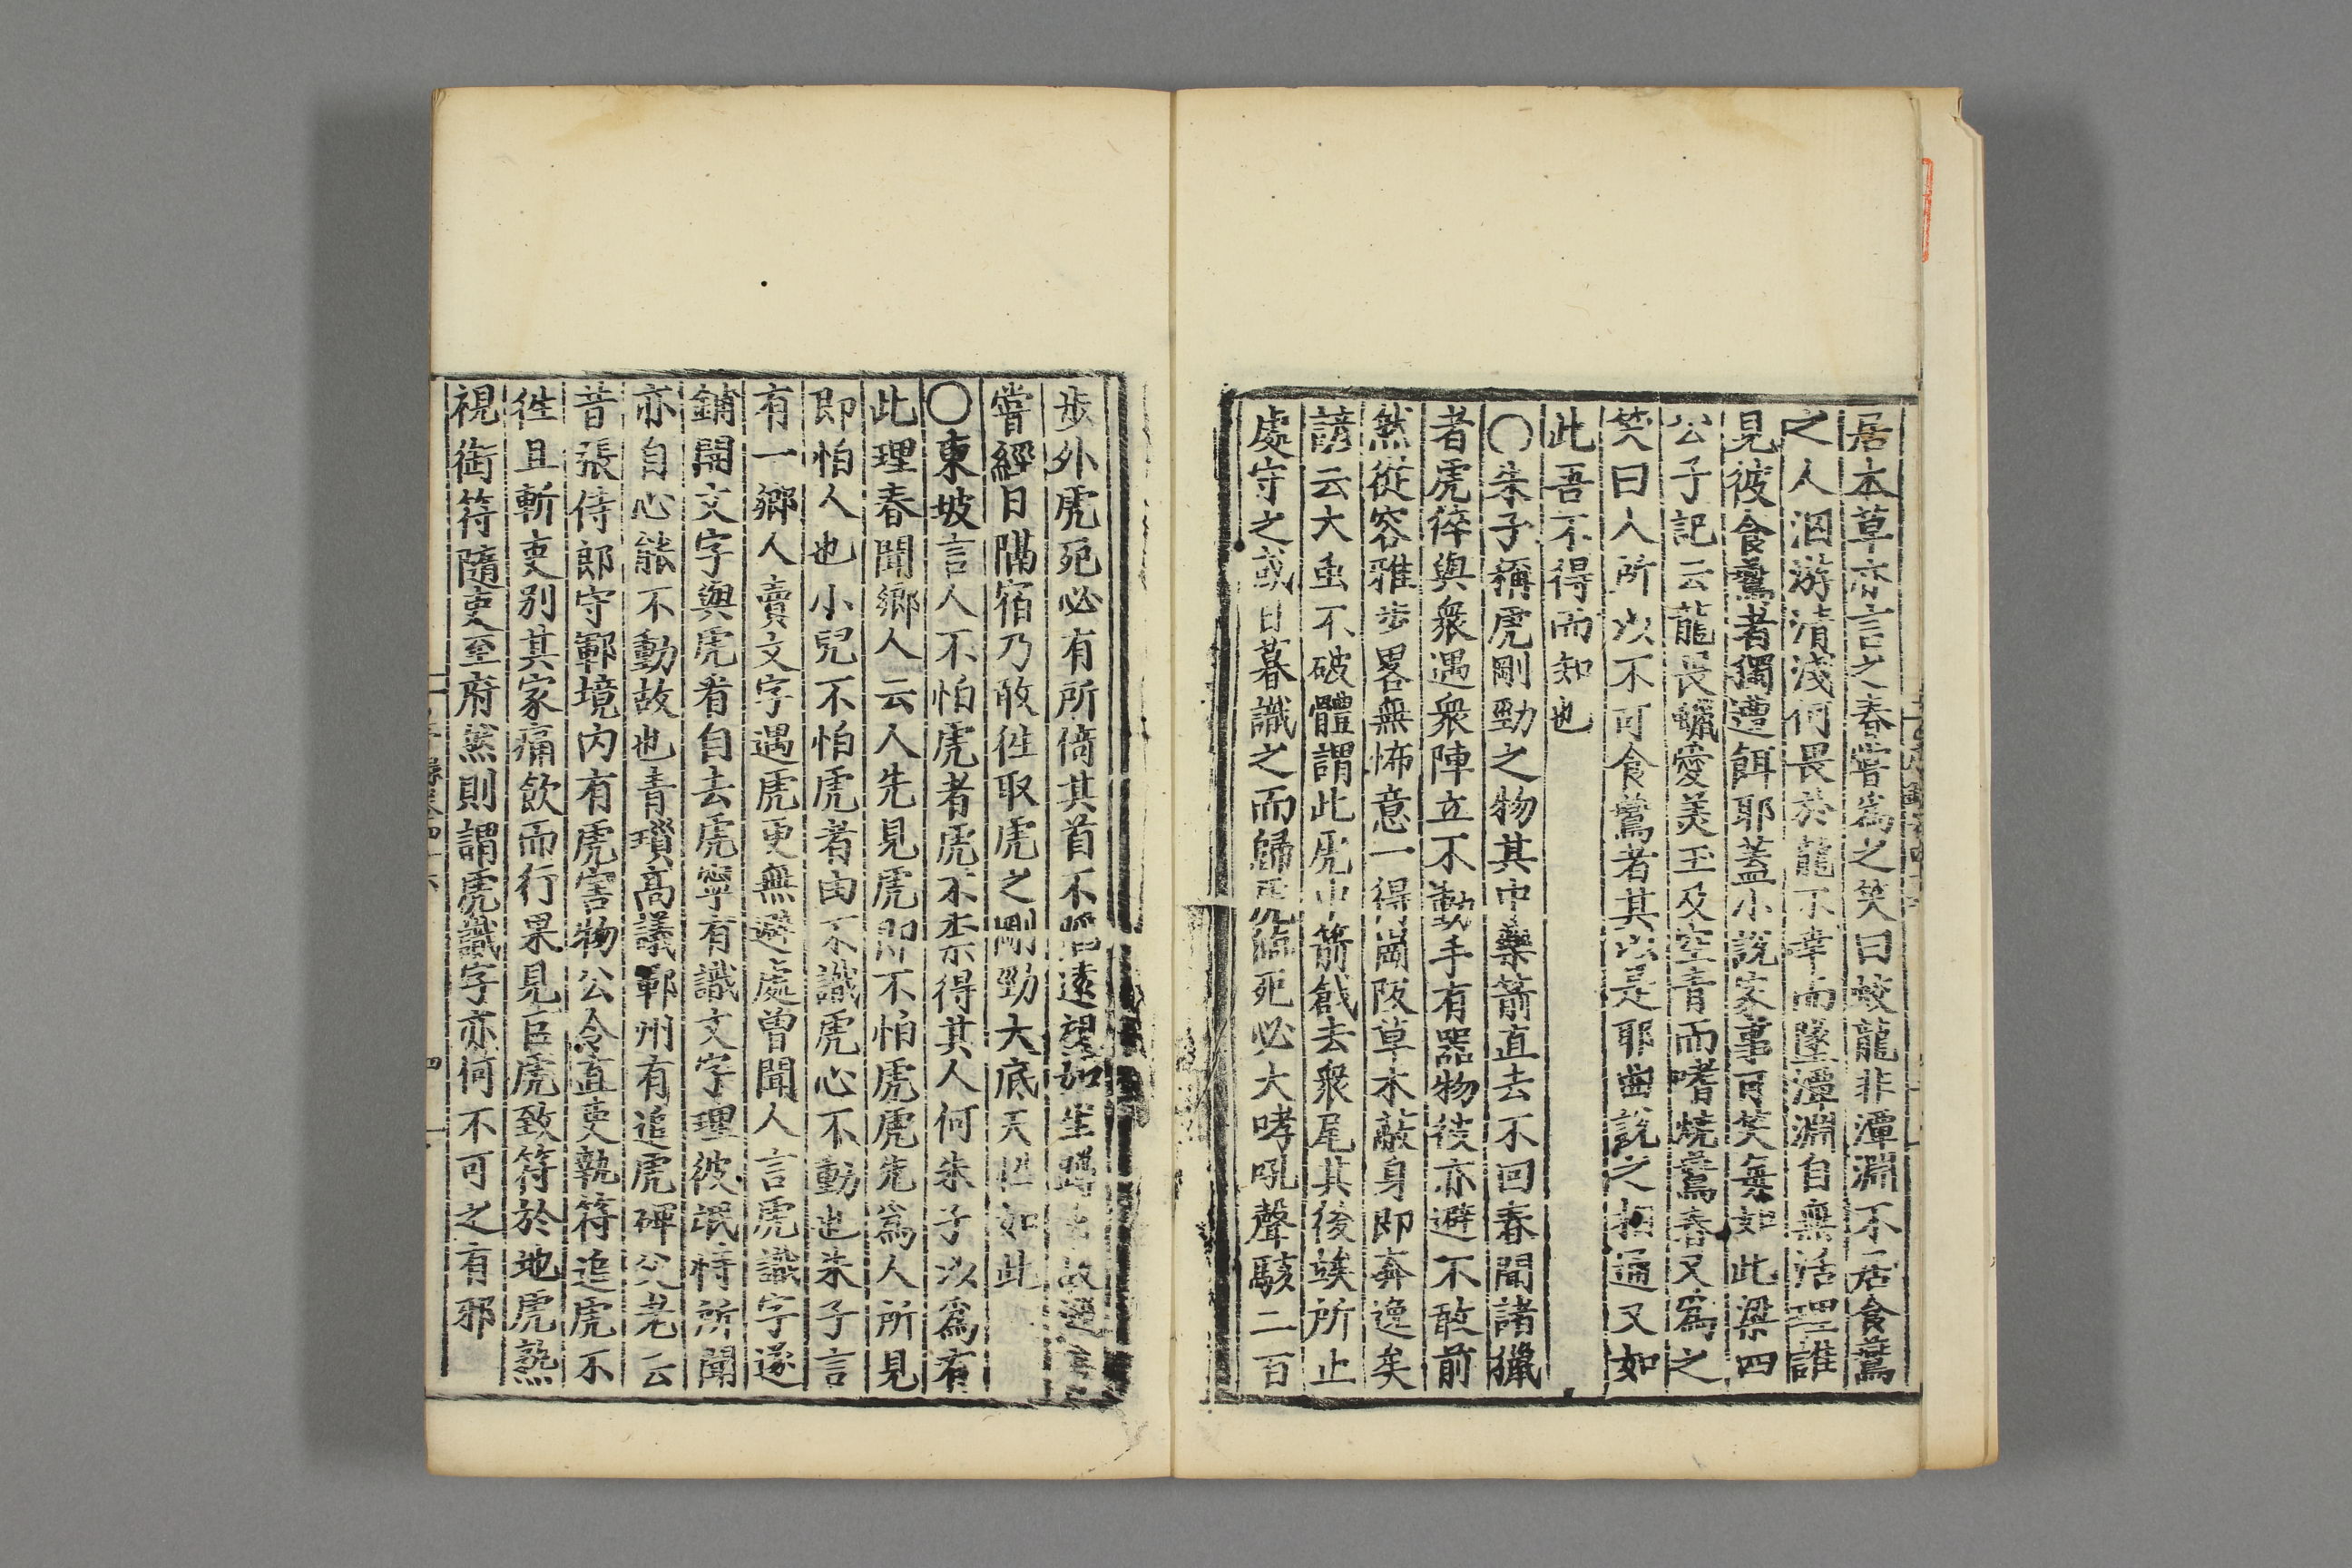 居本草亦言之春嘗爲之笑曰蛟龍非潭淵不居食鷰
之人泅游清淺何畏於龍不幸而墜潭淵自無活理誰
見彼食鷰者獨遭餌耶蓋小說家事可笑每如此梁四
公子記云龍畏蠟愛美玉及空青而嗜燒鷰春又爲之
笑曰人所以不可食鷰者其以是耶曲說之相通又如
此吾不得而知也
○朱子稱虎剛勁之物其中藥箭直去不回春聞諸獵
者虎猝與衆遇衆陣立不動手有器物彼亦避不敢前
然從容雅步畧無怖意一得崗阪草木蔽身即奔逸矣
諺云大虫不破體謂此虎中箭鈛去衆尾其後竢所止
處守之或日暮識之而歸虎臨死必大哮吼聲駭二百
步外虎死必有所倚其首不遠望如生
嘗經日隔宿乃敢徃取虎之剛勁大底天性如此
○東坡言人不怕虎者虎不柰得其人何朱子以爲有
此理春聞鄉人云人先見虎即不怕虎虎先爲人所見
即怕人也小兒不怕虎者由不識虎心不動也朱子言
有一鄉人賣文字遇虎更無避處曾聞人言虎識字遂
鋪開文字與虎看自去虎寧有識文字理彼氓恃所聞
亦自心能不動故也青瑣高議鄆州有追虎碑父老云
昔張侍郎守鄆境内有虎害物公令直吏執符追虎不
徃且斬吏别其家痛飲而行果見巨虎致符於地虎熟
視銜符隨吏至府然則謂虎識字亦何不可之有邪